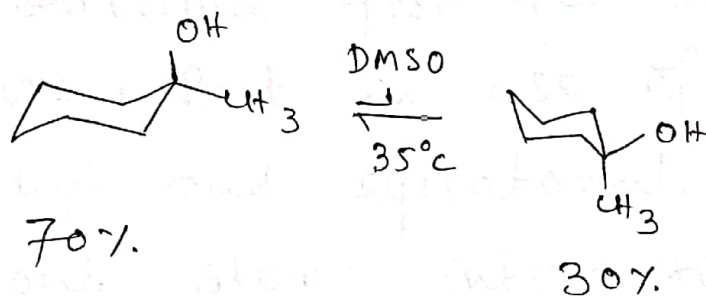 OH
CH3
DMSO
35°C
OH
CH3
70%.
30%.